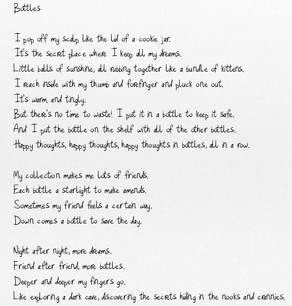 Bottles
I pop off my scalp like the lid of a cookie jar.
It's the secret place where I keep all my dreams.
Little balls of sunshine, all rubbing together like a bundle of kittens.
I reach inside with my thumb and forefinger and pluck one out.
It's warm and tingly.
But there's no time to waste! I put it in a bottle to keep it safe.
And I put the bottle on the shelf with all of the other bottles.
Happy thoughts, happy thoughts, happy thoughts in bottles, all in a row.
My collection makes me lots of friends.
Each bottle a starlight to make amends.
Sometimes my friend feels a certain way.
Down comes a bottle to save the day.
Night after night, more dreams.
Friend after friend, more bottles.
Deeper and deeper my fingers go.
Like exploring a dark cave, discovering the secrets hiding in the nooks and crannies.